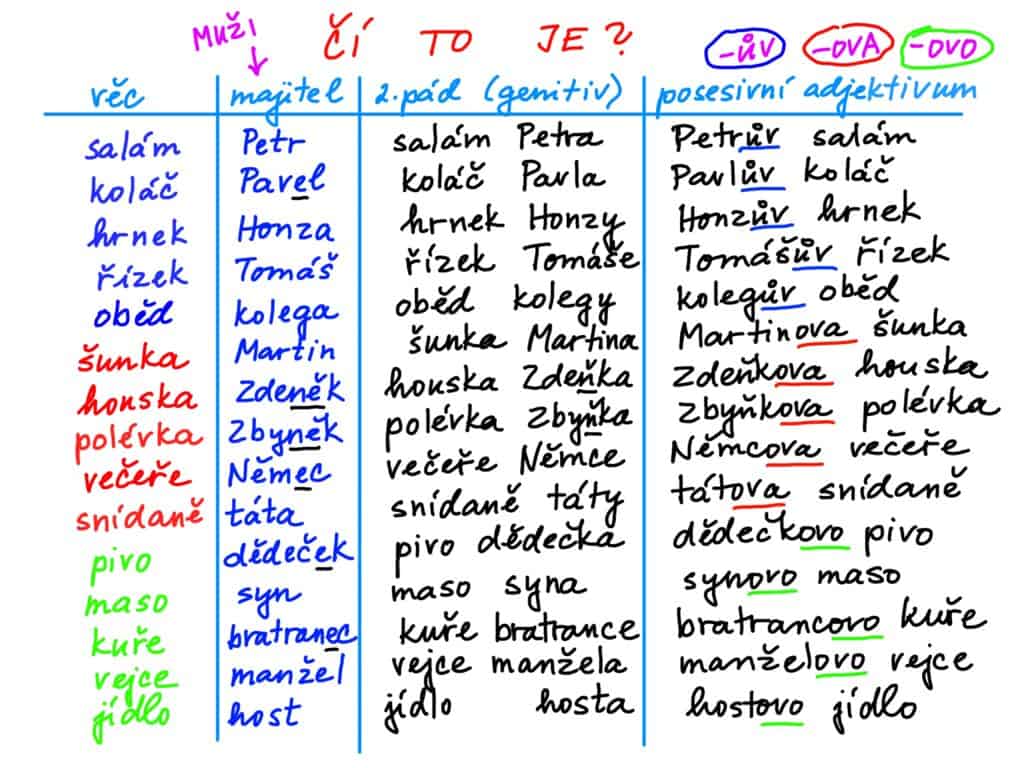 Muži ČÍ TO JE? -ŮV -OVA -OVO
věc majitel 2. pád (genitiv) posesivní adjektivum
salám Petr salám Petra Petrův salám
koláč Pavel koláč Pavla Pavlův koláč
hrnek Honza hrnek Honzy Honzův hrnek
řízek Tomáš řízek Tomáše Tomášův řízek
oběd kolega oběd kolegy kolegův oběd
šunka Martin šunka Martina Martinova šunka
houska Zdeněk houska Zdeňka Zdeňkova houska
polévka Zbyněk polévka Zbyňka Zbyňkova polévka
večeře Němec večeře Němce Němcova večeře
snídaně táta snídaně táty tátova snídaně
pivo dědeček pivo dědečka dědečkovo pivo
maso syn maso syna synovo maso
kuře bratranec kuře bratrance bratrancovo kuře
vejce manžel vejce manžela manželovo vejce
jídlo host jídlo hosta hostovo jídlo